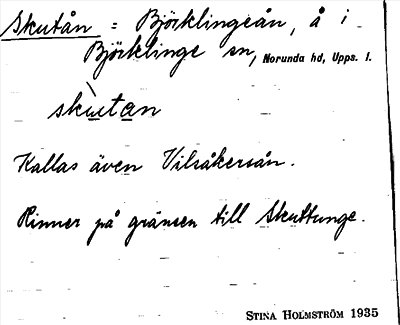 Skutån = Björklingeån, å i
Björklinge sn, Norunda hd, Upps. l.
skùtan
Kallas även Vilsåkersån.
Rinner på gränsen till Skuttunge.
STINA HOLMSTRÖM 1935